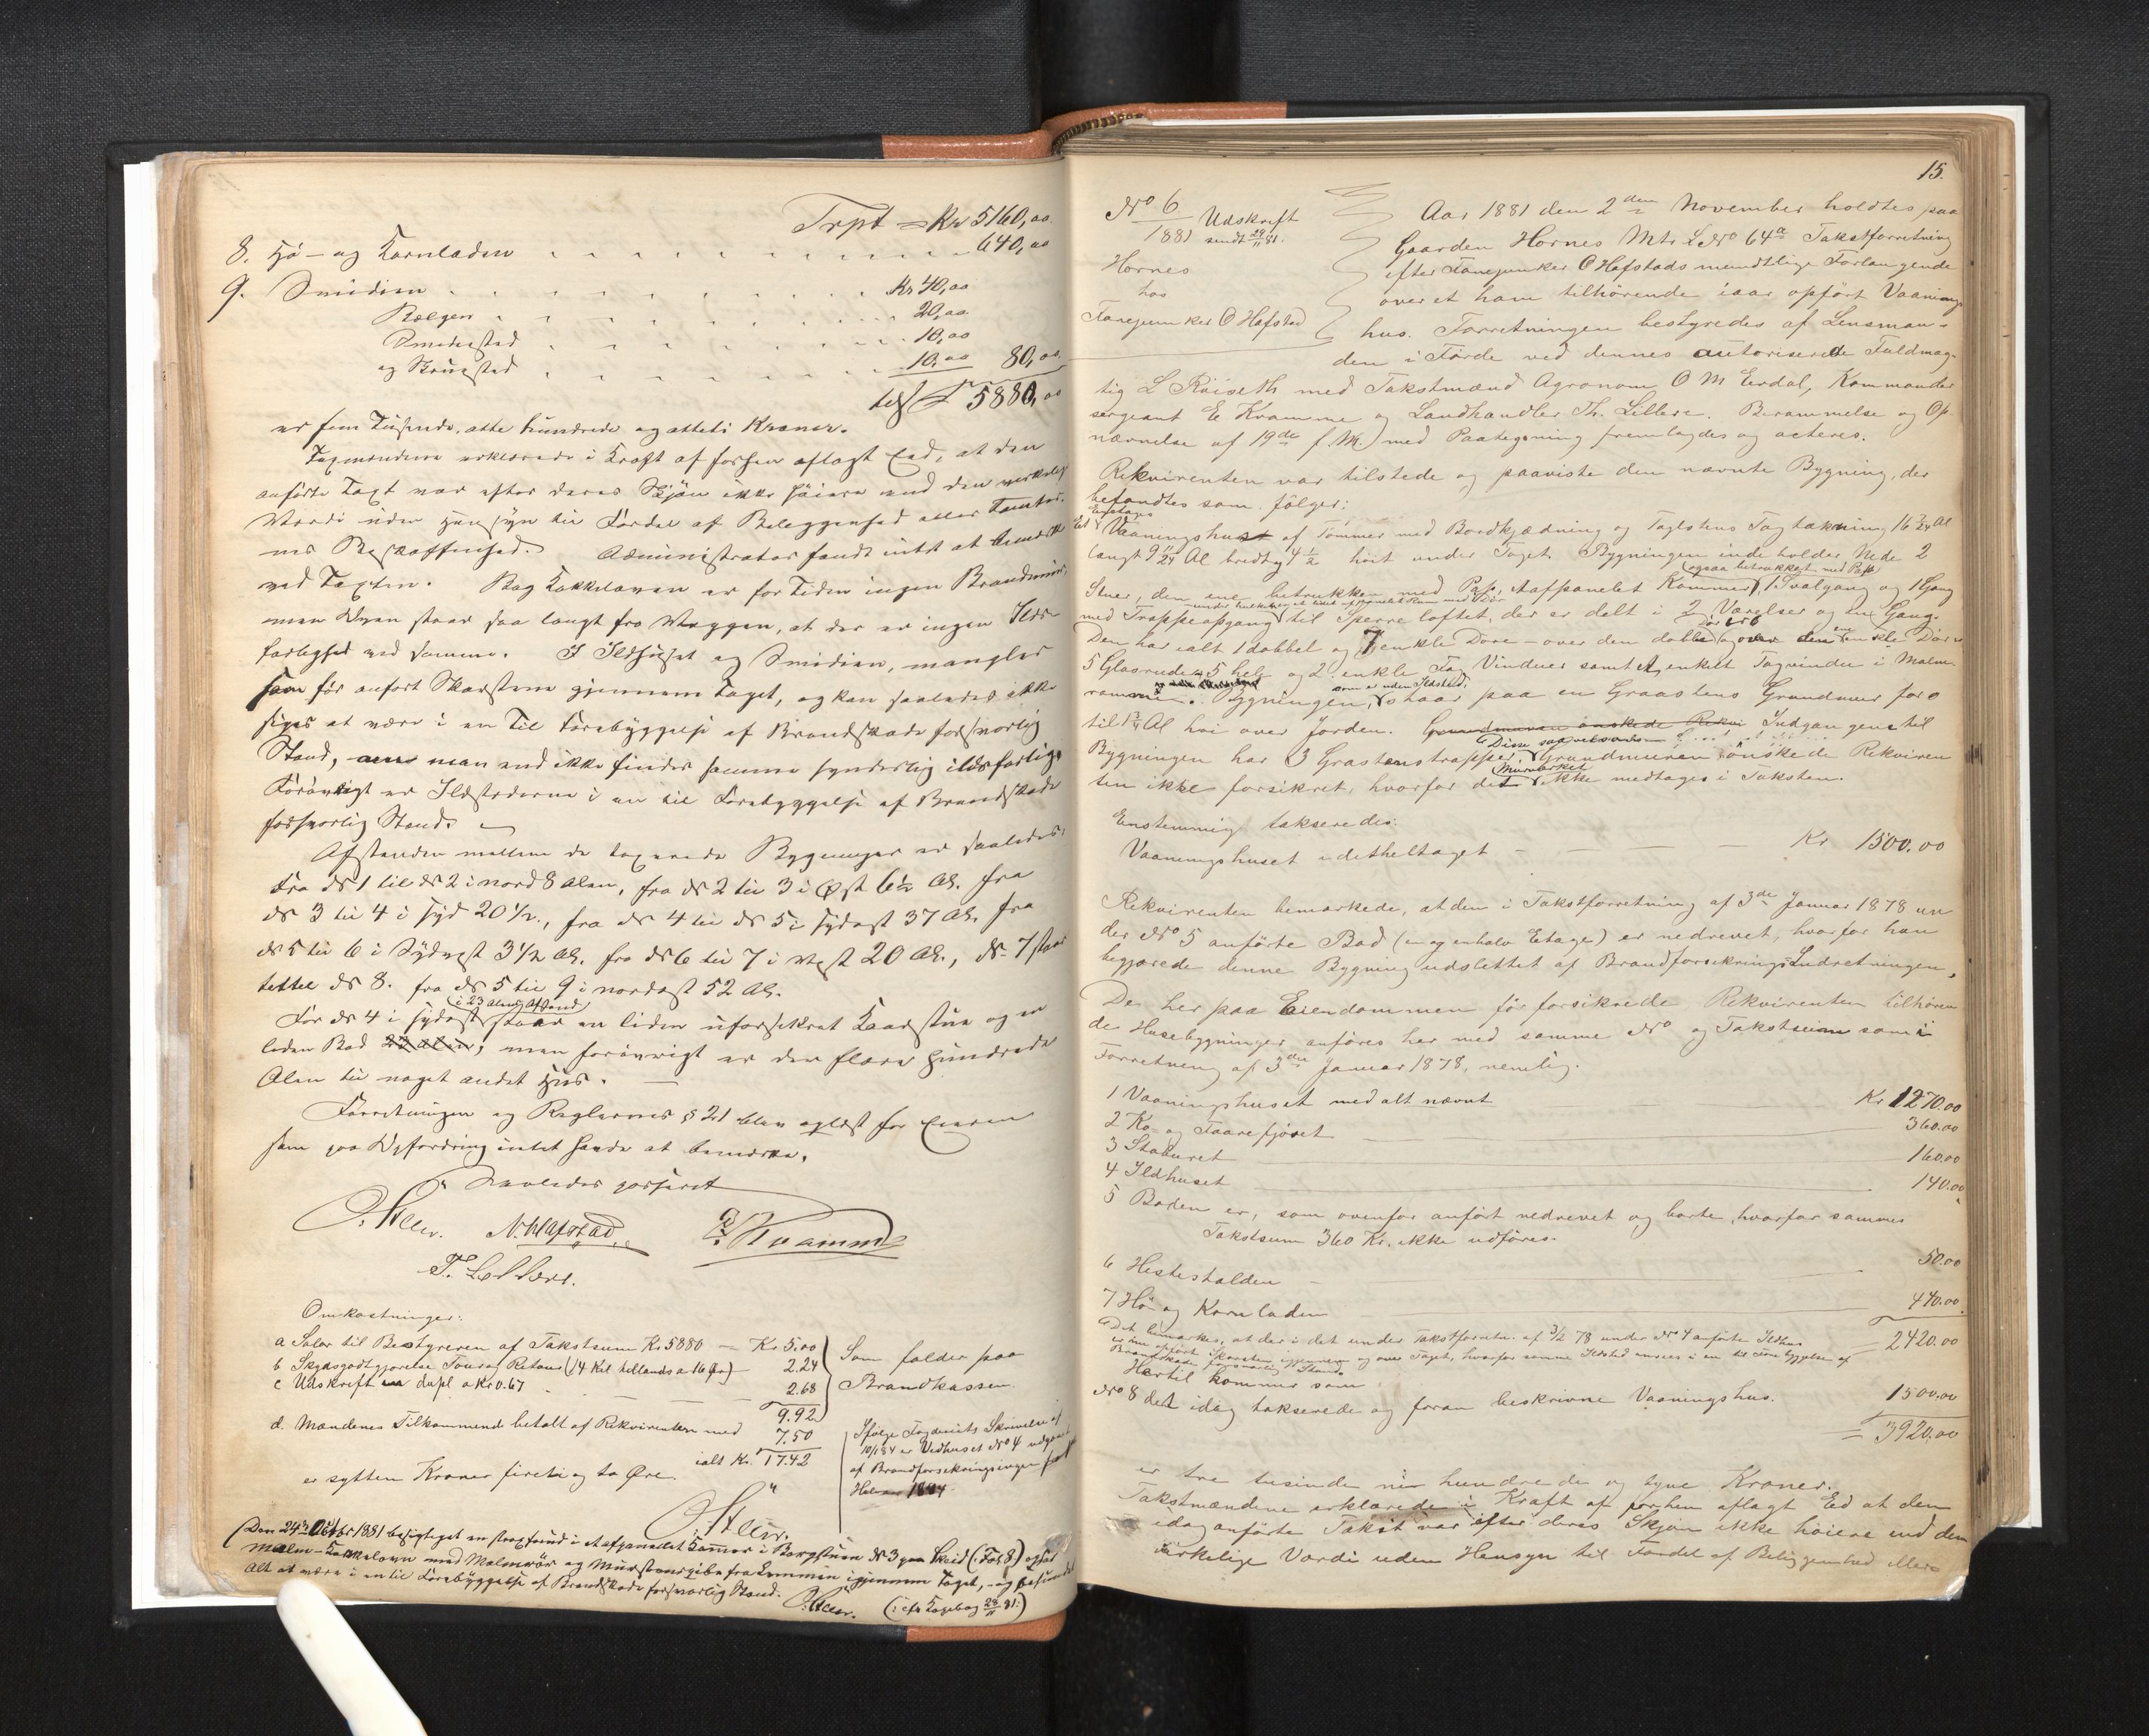 Trpt = Kr 5160,00
8. Hø- og Kornladen 640,00
9. Smidien Kr 40,00
Bælgen 20,00
Smedested 10,00
og Skruested 10,00 80,00
5880,00
er fem Tusende, otte hundrede og otteti Kroner.
Taxmændene erklærede i Kraft af forhen aflagt Eed, at den
anførte Taxt var efter deres Skjøn ikke høiere end den virkelige
Værdi uden Hensyn til Fordel af Beliggenhed eller Tomter-
nes Beskaffenhed. Administrator fandt intet at bemærke
ved Taxten. Bag Kakkelovnen er for Tiden ingen Brandmur,
men Ovnen staar saa langt fra Væggen, at der er ingen Ilds-
farlighed ved samme. I Ildhuset og Smidien, mangler
som før anført Skorstene gjennem Taget, og kan saaledes ikke
siges at være i en til Forebyggelse af Brandskade forsvarlig
Stand, men man end ikke finder samme synderlig ildsfarlige
Forøvrigt er Ildstederne i en til Forebyggelse af Brandskade
forsvarlig Stand.
Afstanden mellem de taxerede Bygninger er saaledes:
Fra No 1 til No 2 i nord 8 Alen, fra No 2 til 3 i Øst 6½ Al. fra
No 3 til 4 i syd 20½, fra No 4 til No 5 i sydost 37 Al. fra
No 5 til 6 i Sydvest 3½ Al. fra No 6 til 7 i vest 20 Al., No 7 staar
tættil No 8. fra No 5 til 9 i nordost 52 Al.
(i 23 Alens Afstand)
For No 4 i sydost staar en liden uforsikret Kaarstue og en
liden Bod 23 Alen, men forøvrigt er der flere hundrede
Alen til noget andet Huus.
Forretningen og Reglernes § 21 blev oplæst for Eieren
som paa Opfordring intet havde at bemærke.
Saaledes passeret
N. Hafstad R. Kvamme
T. Lillere.
Omkostninger:
a Salær til Bestyreren af Takstsum Kr 5880 - Kr 5.00
b Skydsgodtgjørelse Tour og Retour (14 Kil tillands a 16 Øre) - 2.24
c Udskrift in dupl a Kr 0.67 2.68
9.92
Som falder paa
Brandkassen.
d. Mændenes Tilkommende betalt af Rekvirenten med 7.50
ialt Kr. 17.42
er sytten Kroner fireti og to Øre
Ifølge Fogderiets Skrivelse af
10/1 84 er Vedhuset No 4 udgaaet
af Brandforsikringen fra
1884.
(Den 24de Octbr 1881 besigtiget en opsat i et afpanelet Kammer i Borgstuen No 3 paa Skeid (Fol. 8) opsat
Malm-Kakkelovn med Malmrør og Murstenspibe fra Lemmen igjennem Taget, og befandtes
Alt at være i en til Forebyggelse af Brandskade forsvarlig Stand. (: cfr Dagbog 28/11 81:)
15.
No 6
1881 Udskrift
sendt 29/11 81.
Hornes
hos
Fanejunker O Hafstad
Aar 1881 den 2den November holdtes paa
Gaarden Hornes Mtr L No 64a Takstforretning
efter Fanejunker O Hafstads mundtlige Forlangende
over et ham tilhørende iaar opført Vaanings
hus. Forretningen bestyredes af Lensman-
den i Førde ved dennes autoriserede Fuldmæg-
tig L Røiseth med Takstmænd Agronom O M Erdal, Kommander
sergeant E Kvamme og Landhandler Th. Lillere. Berammelse og Op-
nævnelse af 19de f. M. med Paategning fremlagdes og acteres.
Rekvirenten var tilstede og paaviste den nævnte Bygning, der
befandtes som følger:
Etages
Et Vaaningshus af Tømmer med Bordklædning og Taglstens Tagtækning 16 3/24 Al
langt 9 11/24 Al bredt og 4½ høit under Taget. Bygningen inde holder Nede 2
(ogsaa betrukket med Pap)
Stuer, den ene betrukken med Pap, et afpanelet Kammer, 1 Svalgang og 1 Gang
med Trappeopgang til Sperreloftet, der er delt i 2 Værelser og en Gang.
Den har ialt 1 dobbel og 7 enkle Døre - over den doble og over den ene enkle Dør er
5 Glasruder, 5 hele og 2 enkle Fag Vinduer samt et enkelt Tagvindu i Malm-
som er uden Ildsted,
ramme. Bygningen, staar paa en Graastens Grundmur fra 0
til 1¾ Al høi over Jorden. Grundmuren ønskede Rekvi Indgangene til
Disse saavelsom
Bygningen har 3 Grastenstrapper, Grundmuren ønskede Rekviren
Murværket
ten ikke forsikret, hvorfor det ikke medtages i Taksten.
Enstemmig takseredes:
Vaaningshuset i dethele taget - Kr 1500.00
Rekvirenten bemærkede, at den i Takstforretning af 3de Januar 1878 un
der No 5 anførte Bod (en og enhalv Etage) er nedrevet, hvorfor han
begjærede denne Bygning udslettet af Brandforsikrings-Indretningen.
De her paa Eiendommen før forsikrede Rekvirenten tilhøren
de Husebygninger anføres her med samme No og Takstsum som i
Forretning af 3die Januar 1878, nemlig:
1 Vaaningshuset med alt nævnt Kr 1270.00
2 Ko- og Faarefjøset 360.00
3 Staburet 160.00
4 Ildhuset 140.00
5 Boden er, som ovenfor anført nedrevet og borte, hvorfor sammes
Takstsum 360 Kr. ikke udføres.
6 Hestestalden 50.00
7 Hø og Kornladen 440.00
2420.00
Det bemærkes, at der i det under Takstforretn. af 3/1 78 under No 4 anførte Ildhus
er nu opført Skorsten igjennem og over Taget, hvorfor samme Ildsted ansees i en til Fore byggelse af
Brandskade forsvarlig Stand.
Hertil kommer som
No 8 det idag takserede og foran beskrevne Vaaningshus. 1500.00
= 3920.00
er tre tusinde ni hundrede og tyve Kroner.
Takstmændene erklærede i Kraft af forhen aflagt Eed at den
idag anførte Takst var efter deres Skjøn ikke høiere end den
virkelige Værdi uden Hensyn til Fordel af Beliggenhed eller